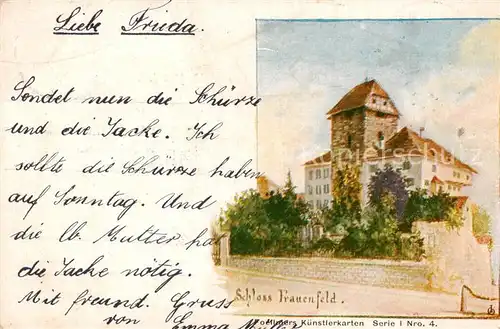 Liebe Fruda.
Sendet nun die Schürze
und die Jacke. Ich
sollte die Schürze haben
auf Sonntag. Und
die lb. Mutter hat
die Jacke nötig.
Mit freund. Gruss
von Emma
Schloss Frauenfeld.
Künstlerkarten Serie I Nro. 4.